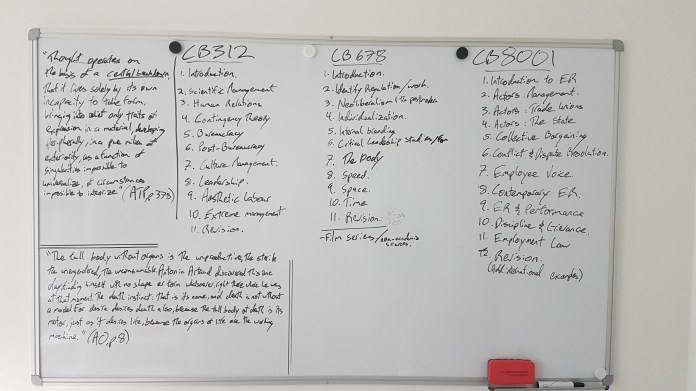 "Thought operates on
the basis of a central breakdown
That it lives solely by its own
incapacity to take form,
bringing into relief only traits of
expression in a material, developing
peripherally, in a pure milieu of
exteriority, as a function of
singularities impossible to
universalize, of circumstances
impossible to interiorize" (ATP, p.378)
CB312
1. Introduction.
2. Scientific Management
3. Human Relations
4. Contingency Theory
5. Bureaucracy
6. Post-Bureaucracy
7. Culture Management.
8. Leadership.
9. Aesthetic Labour
10. Extreme management
11. Revision.
CB678
1. Introduction.
2. Identity Regulation/work.
3. Neoliberalism
4. Individualization.
5. Internal branding
6. Critical Leadership Studies
7. The body
8. Speed.
9. Space.
10. Time
11. Revision.
- Film series/non-academic sources.
CB8001
1. Introduction to ER
2. Actors: Management.
3. Actors: Trade Unions
4. Actors: The State
5. Collective Bargaining
6. Conflict & Dispute Resolution.
7. Employee Voice.
8. Contemporary ER.
9. ER & Performance
10. Discipline & Grievance.
11. Employment Law
12. Revision.
(Add international examples)
"The full body without organs is the unproductive, the sterile
the unengendered, the unconsumable. Antonin Artaud discovered this one
day, finding himself with no shape or form whatsoever, right there where he was
at that moment. The death instinct: that is its name, and death is not without
a model. For desire desires death also, because the full body of death is its
motor, just as it desires life, because the organs of life are the working
machine." (AO, p.8)